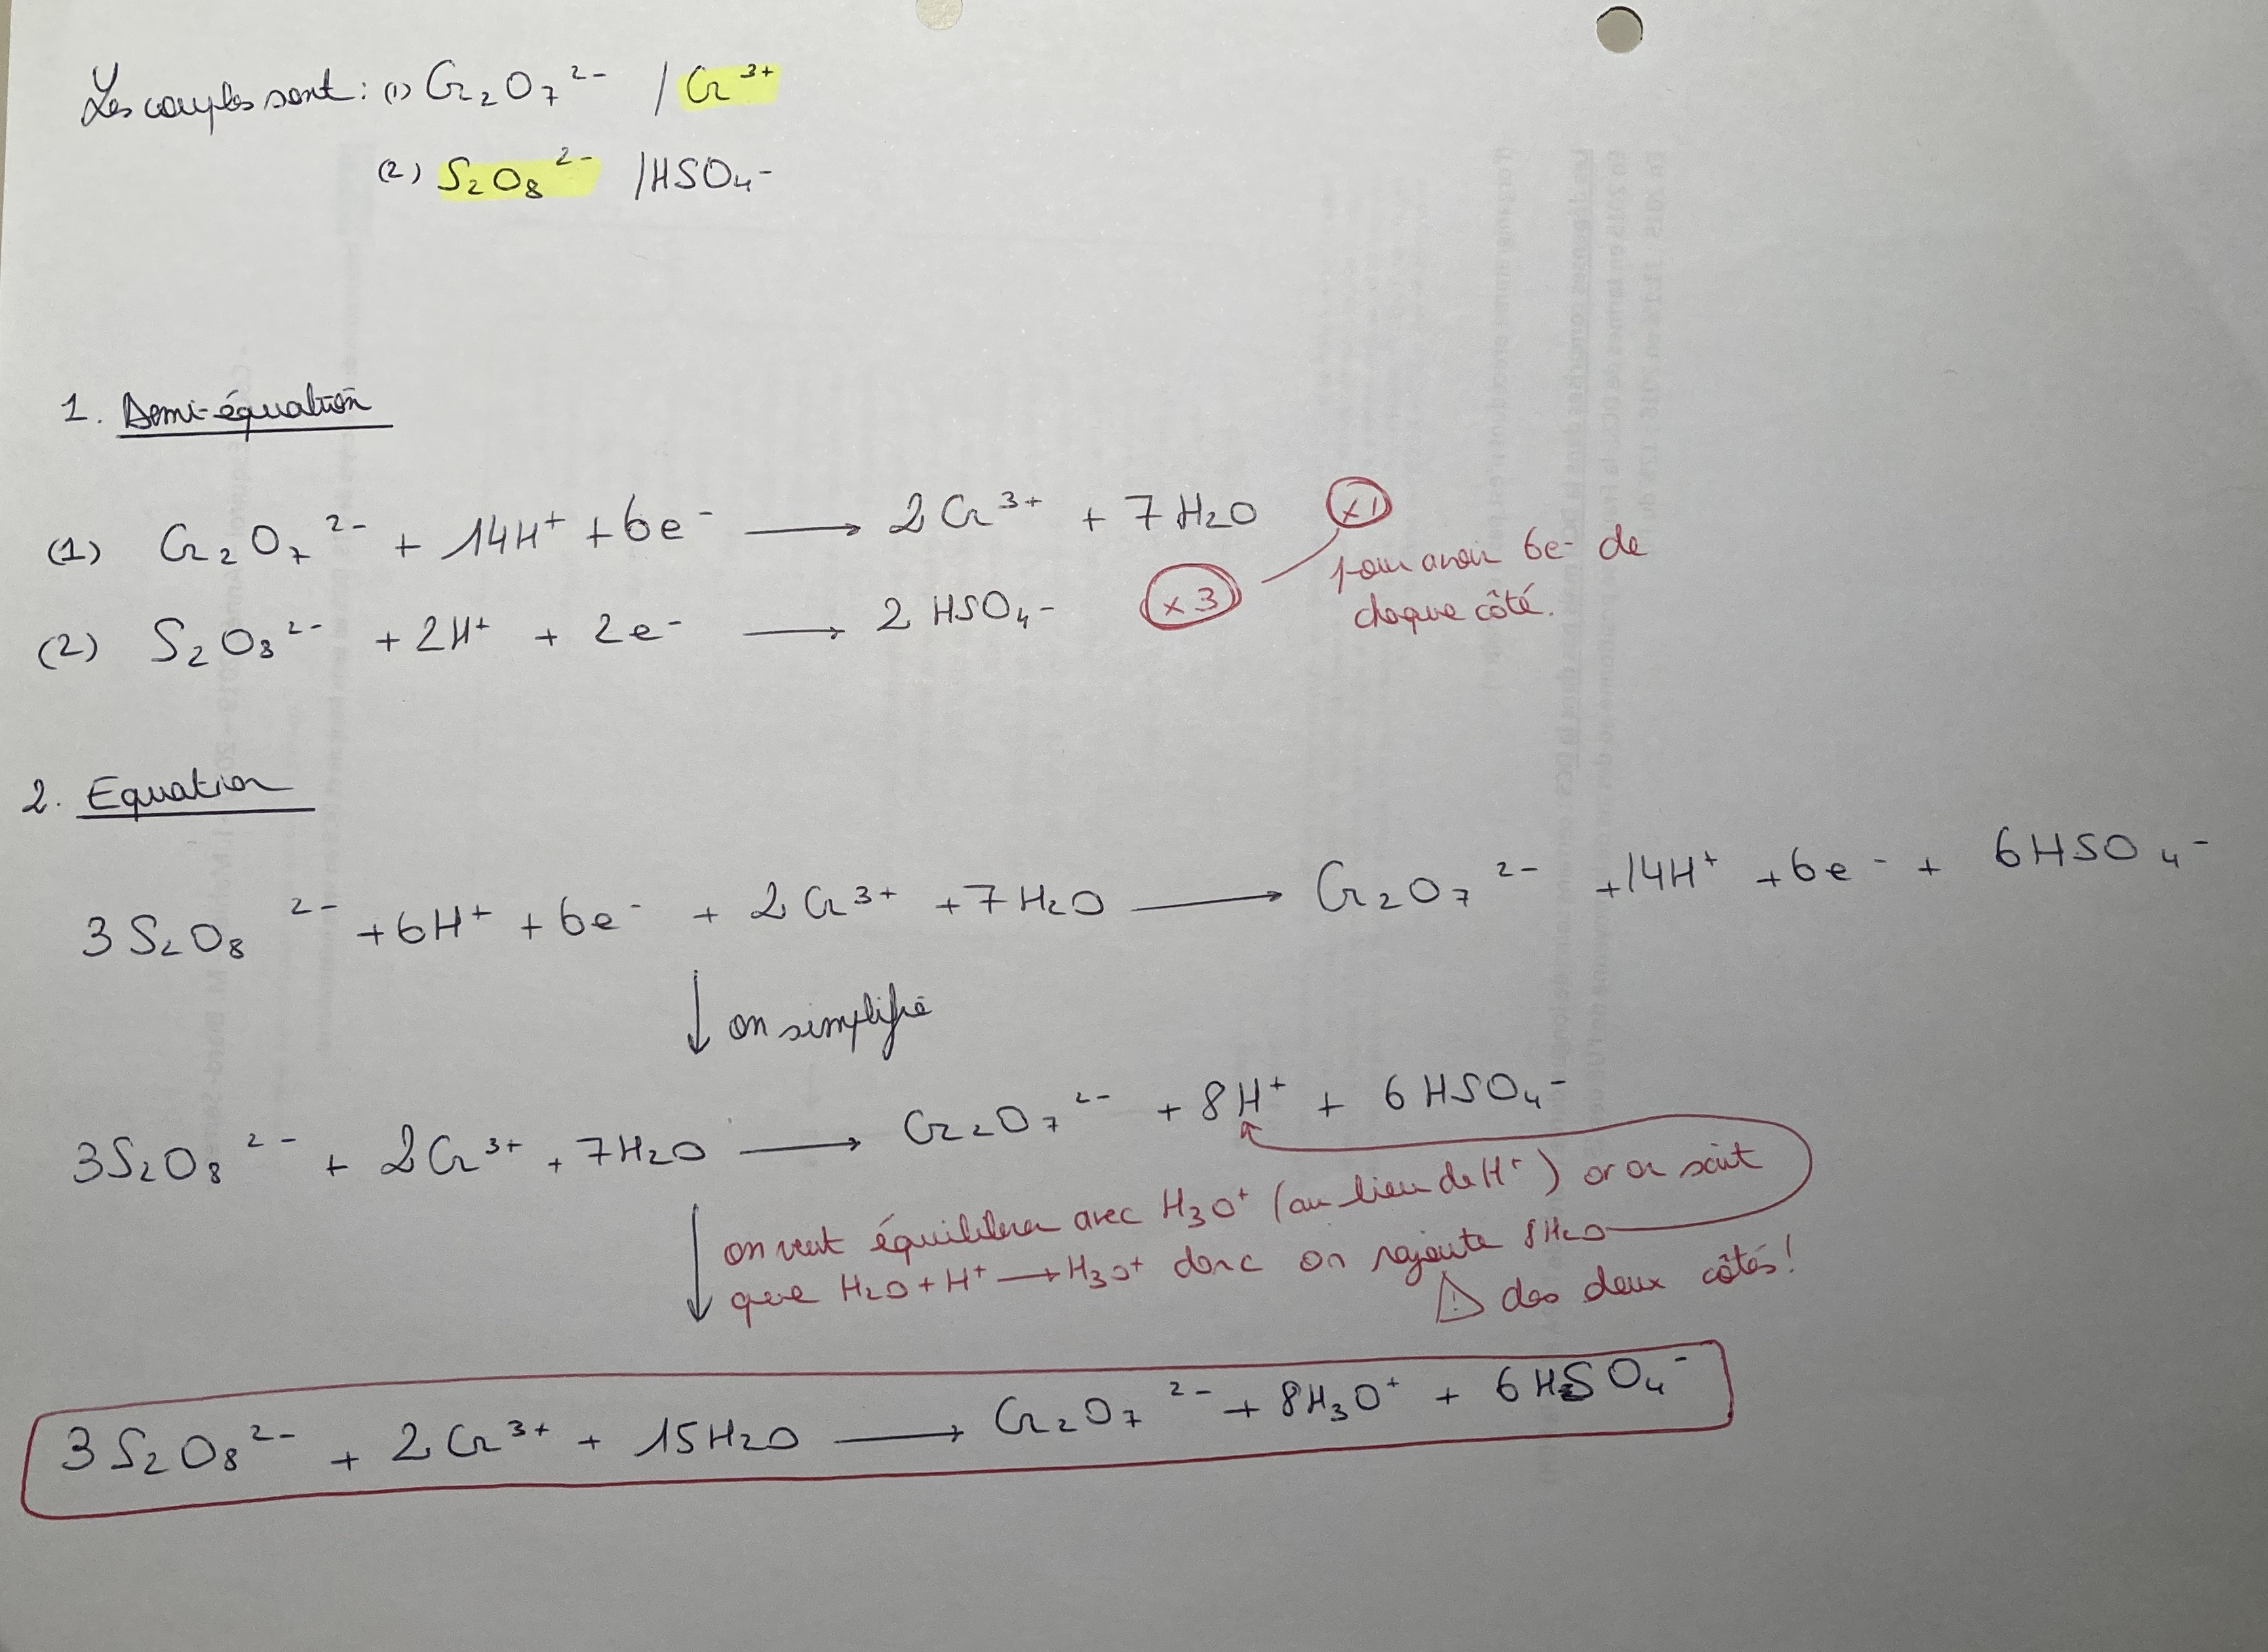 Les couples sont : (1) Cr₂O₇²⁻ / Cr³⁺
(2) S₂O₈²⁻ / HSO₄⁻
1. Demi-équation
(1) Cr₂O₇²⁻ + 14H⁺ + 6e⁻ → 2Cr³⁺ + 7H₂O ×1
pour avoir 6e⁻ de
chaque côté.
(2) S₂O₈²⁻ + 2H⁺ + 2e⁻ → 2 HSO₄⁻ ×3
2. Equation
3S₂O₈²⁻ + 6H⁺ + 6e⁻ + 2Cr³⁺ + 7H₂O → Cr₂O₇²⁻ + 14H⁺ + 6e⁻ + 6HSO₄⁻
↓ on simplifie
3S₂O₈²⁻ + 2Cr³⁺ + 7H₂O → Cr₂O₇²⁻ + 8H⁺ + 6HSO₄⁻
↓ on veut équilibrer avec H₃O⁺ (au lieu de H⁺) or on sait
que H₂O + H⁺ → H₃O⁺ donc on rajoute 8H₂O
⚠ des deux côtés !
3S₂O₈²⁻ + 2Cr³⁺ + 15H₂O → Cr₂O₇²⁻ + 8H₃O⁺ + 6HSO₄⁻